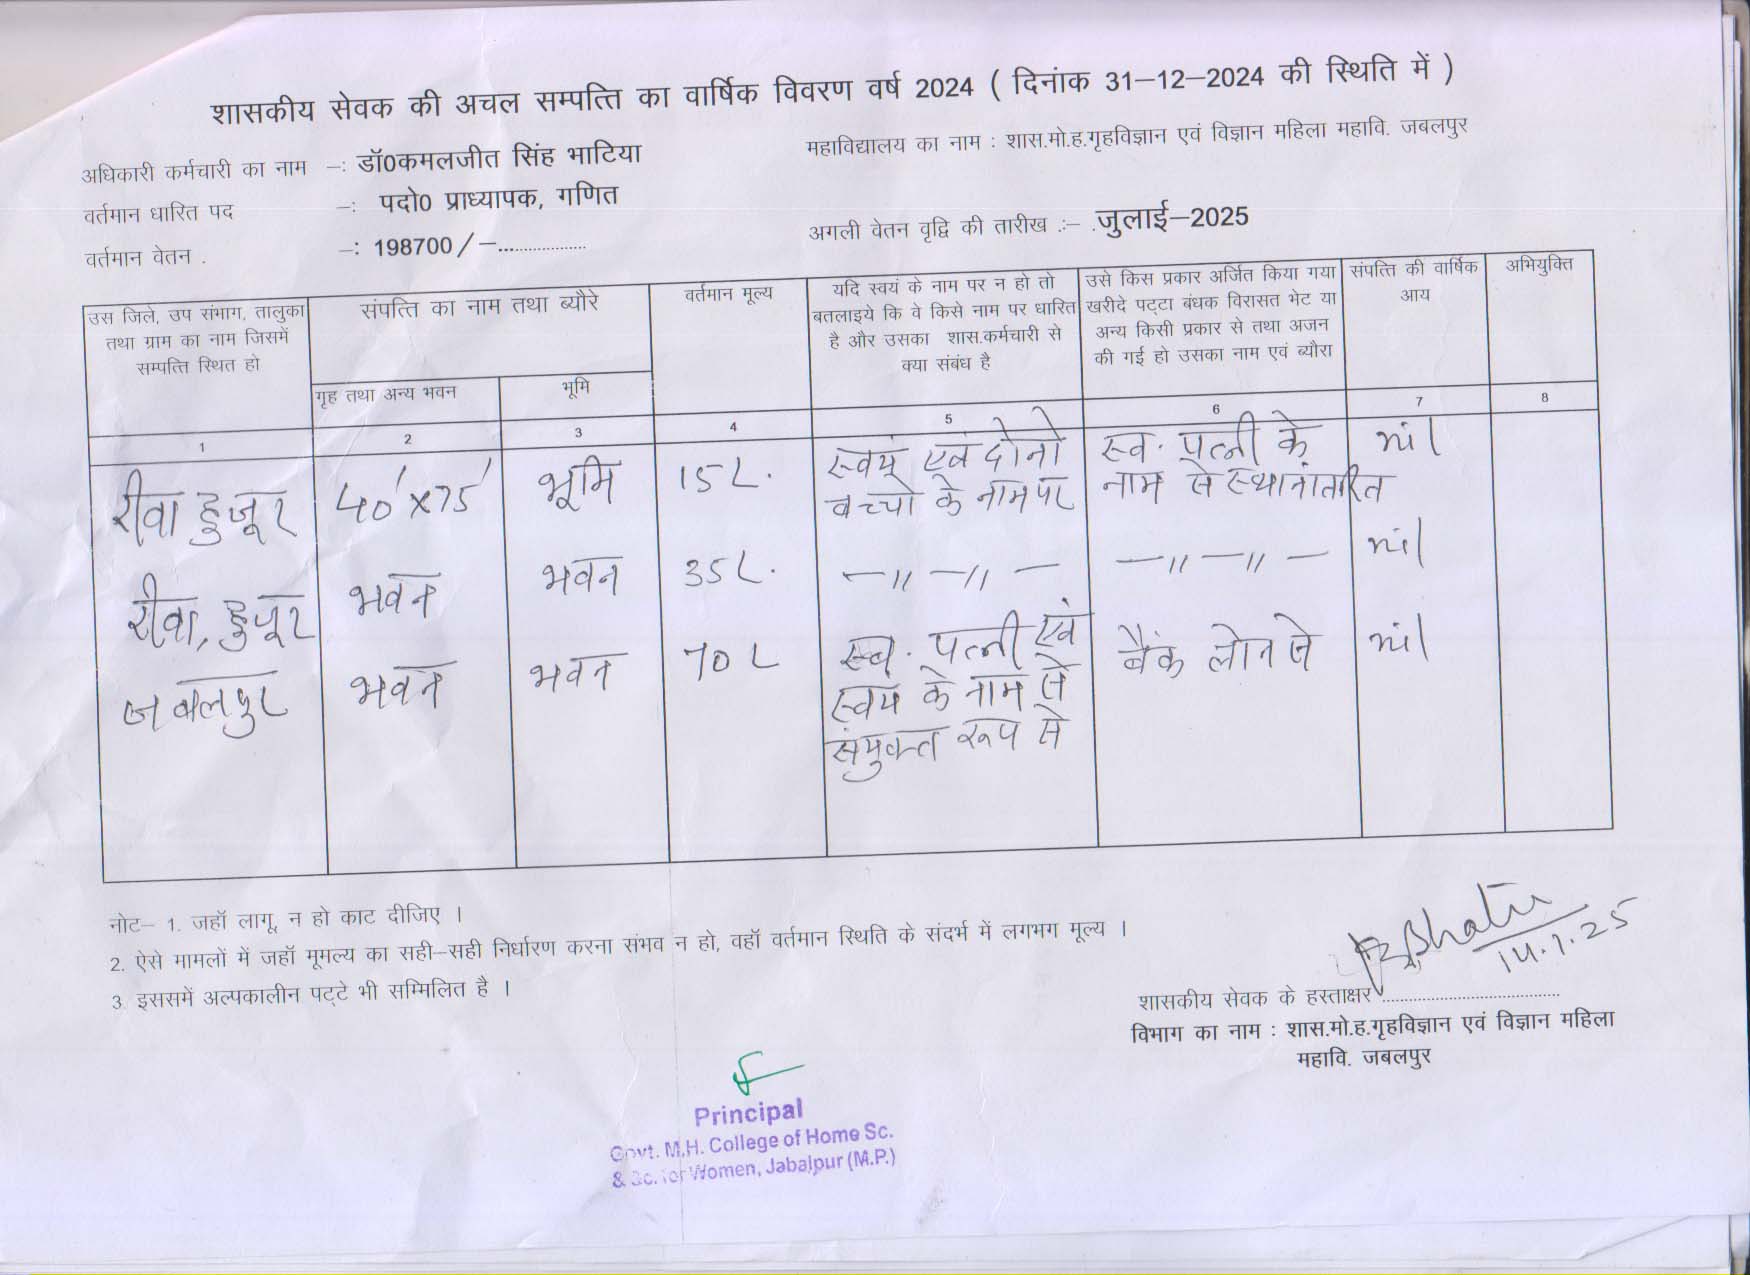 शासकीय सेवक की अचल सम्पत्ति का वार्षिक विवरण वर्ष 2024 ( दिनांक 31–12–2024 की स्थिति में )
अधिकारी कर्मचारी का नाम –: डॉ0कमलजीत सिंह भाटिया
महाविद्यालय का नाम : शास.मो.ह.गृहविज्ञान एवं विज्ञान महिला महावि. जबलपुर
वर्तमान धारित पद –: पदो0 प्राध्यापक, गणित
वर्तमान वेतन . –: 198700/–..................
अगली वेतन वृद्वि की तारीख :– .जुलाई–2025
उस जिले, उप संभाग, तालुका
तथा ग्राम का नाम जिसमें
सम्पत्ति स्थित हो
संपत्ति का नाम तथा ब्यौरे
गृह तथा अन्य भवन
भूमि
वर्तमान मूल्य
यदि स्वयं के नाम पर न हो तो
बतलाइये कि वे किसे नाम पर धारित
है और उसका शास.कर्मचारी से
क्या संबंध है
उसे किस प्रकार अर्जित किया गया
खरीदे पट्टा बंधक विरासत भेट या
अन्य किसी प्रकार से तथा अजन
की गई हो उसका नाम एवं ब्यौरा
संपत्ति की वार्षिक
आय
अभियुक्ति
1 2 3 4 5 6 7 8
रीवा हुजूर 40' x 75' भूमि 15 L.
स्वयं एवं दोनो
बच्चो के नाम पर
स्व. पत्नी के
नाम से स्थानांतरित
nil
रीवा, हुजूर भवन भवन 35 L. —〃—〃— —〃—〃— nil
जबलपुर भवन भवन 70 L
स्व. पत्नी एवं
स्वयं के नाम से
संयुक्त रूप से
बैंक लोन से
nil
नोट– 1. जहॉ लागू न हो काट दीजिए ।
2. ऐसे मामलों में जहॉ मूमल्य का सही–सही निर्धारण करना संभव न हो, वहॉ वर्तमान स्थिति के संदर्भ में लगभग मूल्य ।
3. इससमें अल्पकालीन पट्टे भी सम्मिलित है ।
Bhatia
14.1.25
शासकीय सेवक के हस्ताक्षर ......................................
विभाग का नाम : शास.मो.ह.गृहविज्ञान एवं विज्ञान महिला
महावि. जबलपुर
Principal
Govt. M.H. College of Home Sc.
& Sc. for Women, Jabalpur (M.P.)